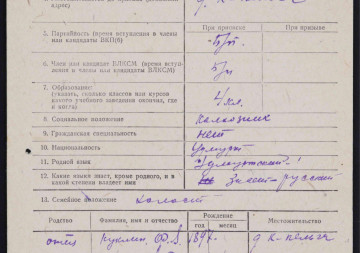 адрес)
При приписке
При призыве
5. Партийность (время вступления в члены
или кандидаты ВКП(б)
Б/п.
6. Член или кандидат ВЛКСМ (время вступ-
ления в члены или кандидаты ВЛКСМ)
Б/п
7. Образование
(указать, сколько классов или курсов
какого учебного заведения окончил, где
и когда)
4 кл.
8. Социальное положение
Колхозник
9. Гражданская специальность
нет
10. Национальность
Удмурт
11. Родной язык
Удмуртский
12. Какие языки знает, кроме родного, и в
какой степени владеет ими
Знает русский
13. Семейное положение
холост
Родство
Фамилия, имя и отчество
Рождение
год
месяц
Местожительство
отец